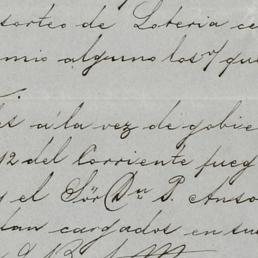 sorteo de Loteria ce
mio alguno los
es a la vez de gobie
12 del Corriente fueg
y el Sör Dn P. Anto
dan cargados en su